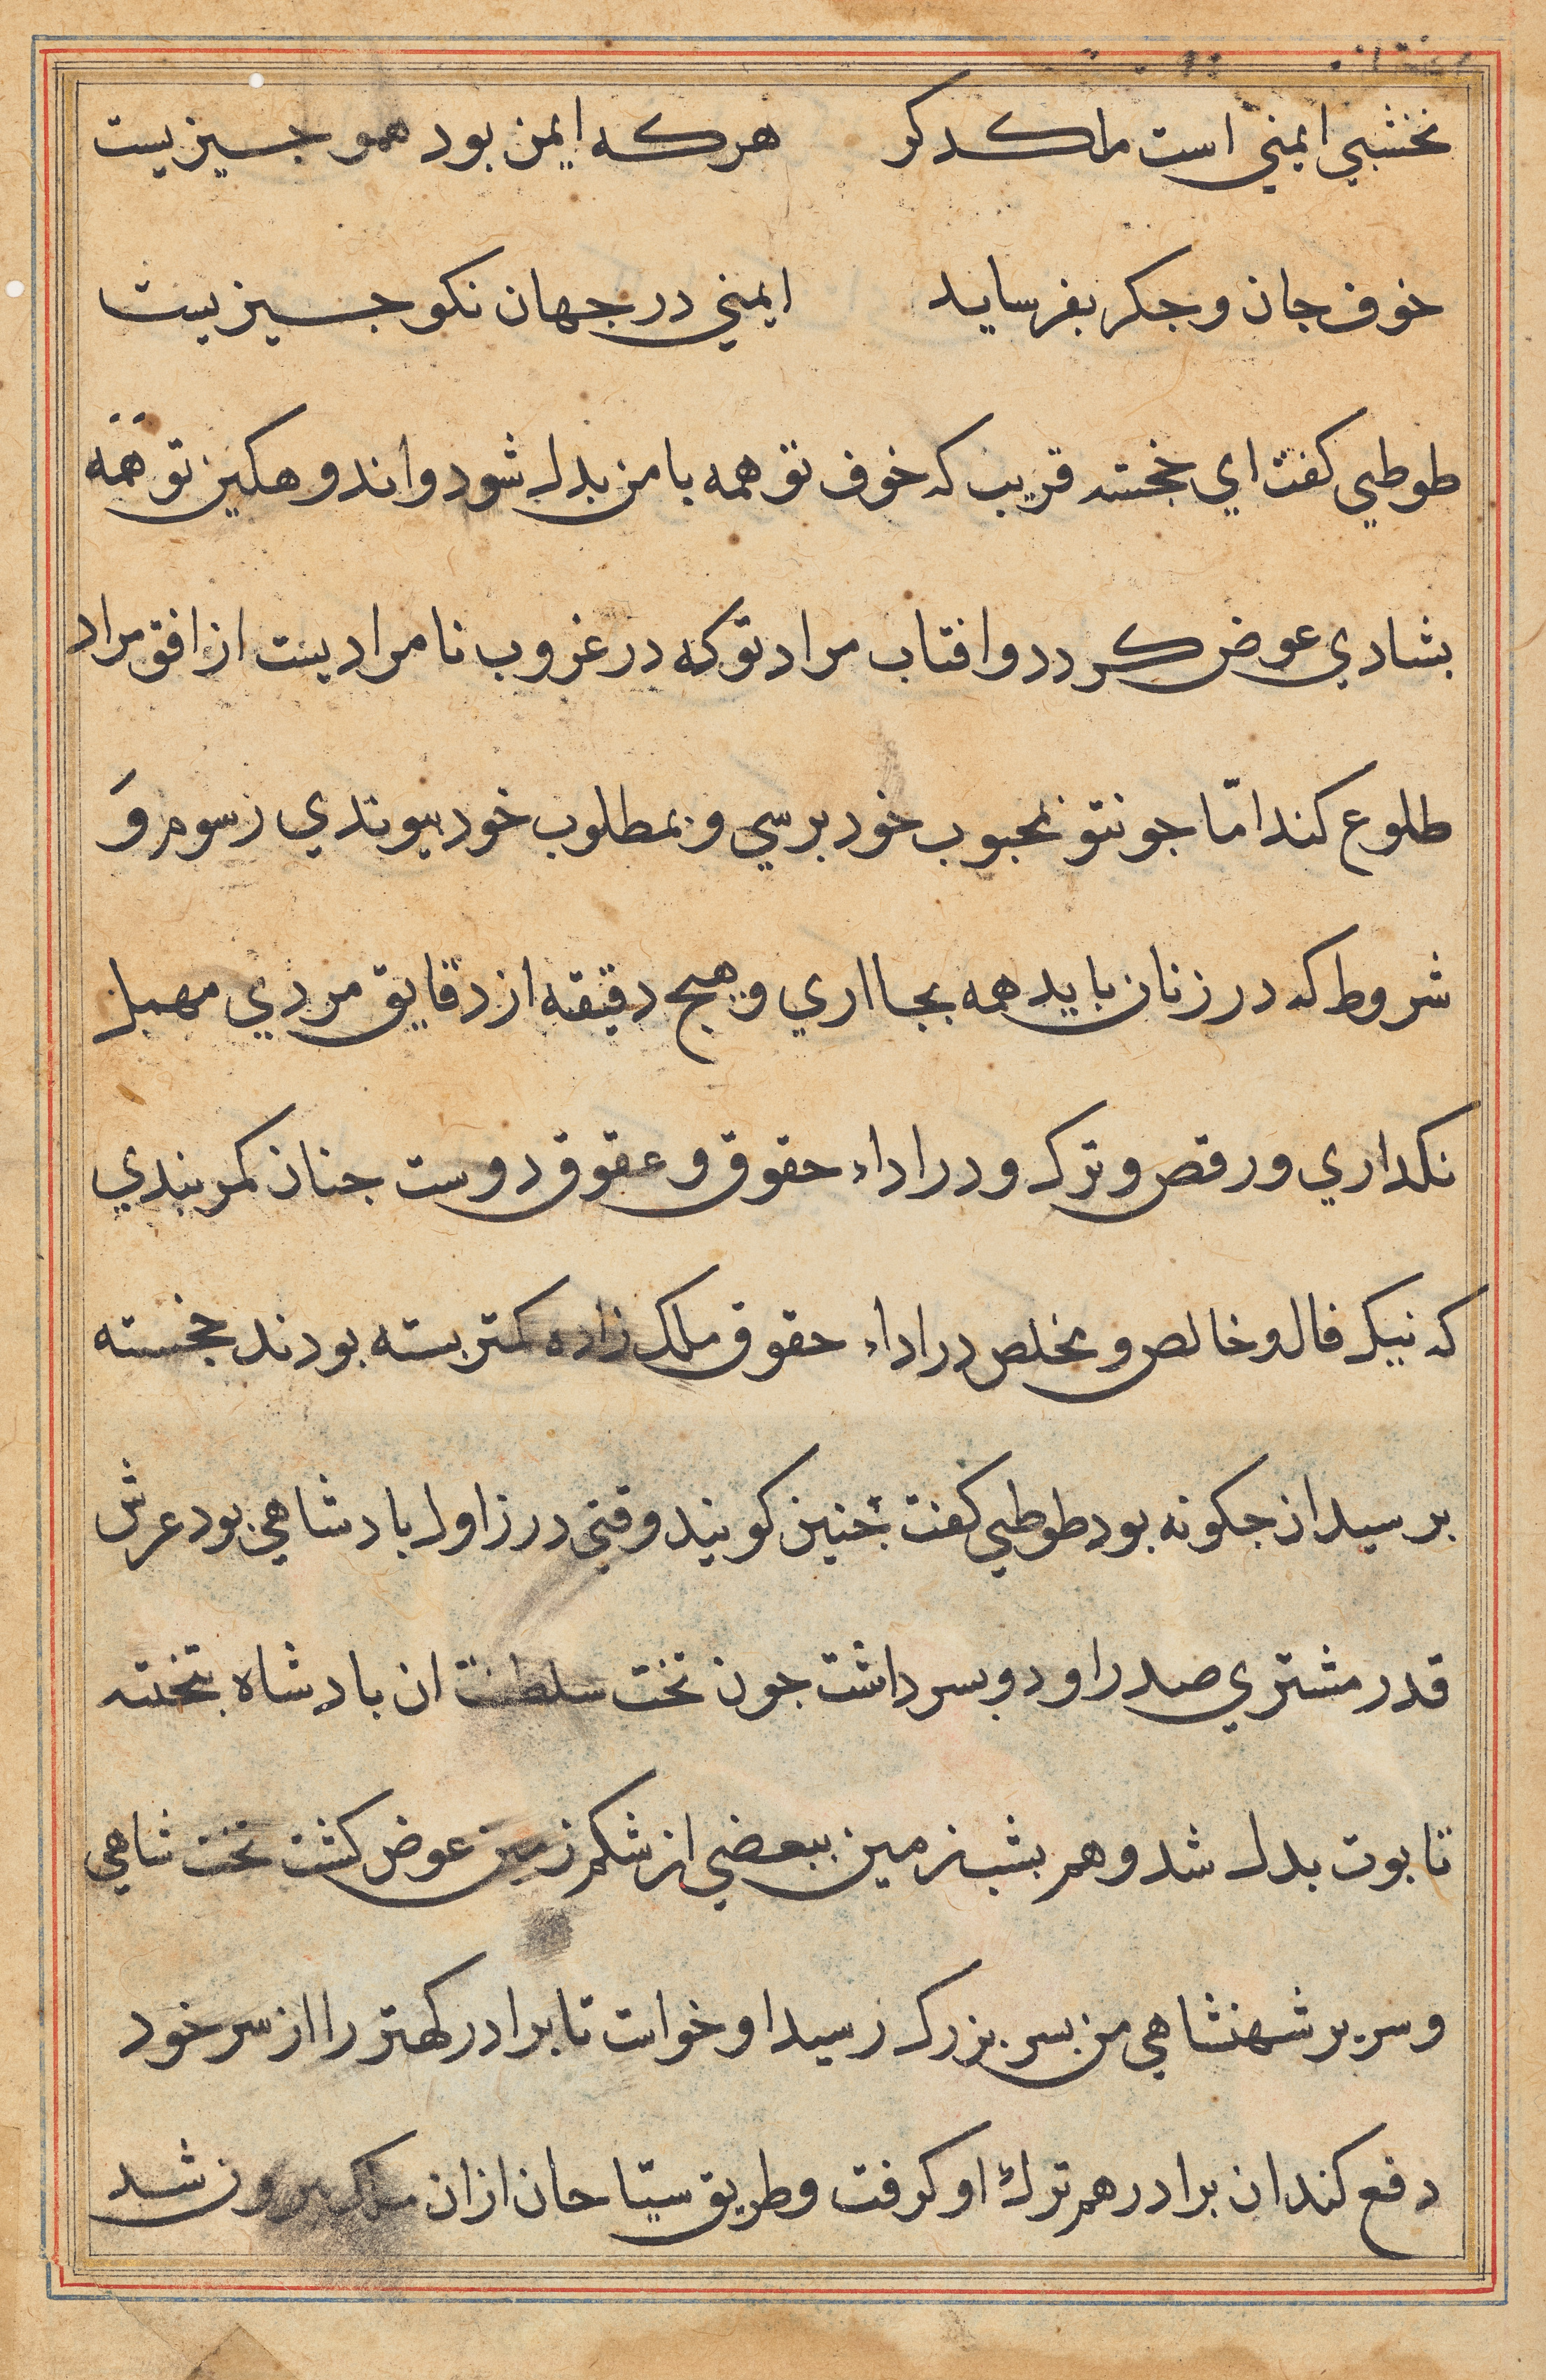 نخشبي ايمني است ملكـــد كر هركـــه ايمن بود همو جـــيزيست
خوف جان و جكر بفرسايد ايمني در جهان نكو جـــيزيست
طوطي كفت اي خجسته قريب كه خوف تو همه با من بدل شود و اندوهكين تو همه
بشادي عوض كـــردد و افتاب مراد تو كه در غروب نامراديست از افق مراد
طلوع كند امّا جونتو بمحبوب خود برسي و بمطلوب خود بيوندي رسوم وَ
شروط كه در زنان بايد همه بجا اري و هيج دقيقه از دقايق مردي مهمل
نكداري و رقص و ترك و در اداء حقوق و عقوق دوست جنان كمر ببندي
كه نيك فال و خالص و مخلص در اداء حقوق ملك زاده كمتر بسته بودند خجسته
برسيد ان جكونه بود طوطي كفت جنين كويند وقتي در زاول بادشاهي بود عرش
قدر مشتري صدر او دو بسر داشت جون تخت سلطنت ان بادشاه بتخته
تابوت بدل شد و هم بشت زمين ببعضي از شكم زمين عوض كشت تخت شاهي
و سرير شهنشاهي من بسر بزرك رسيد او خواست تا برادر كهتر را از سر خود
دفع كند ان برادر هم ترك او كرفت و طريق سيّاحان از ان ملك بيرون شد